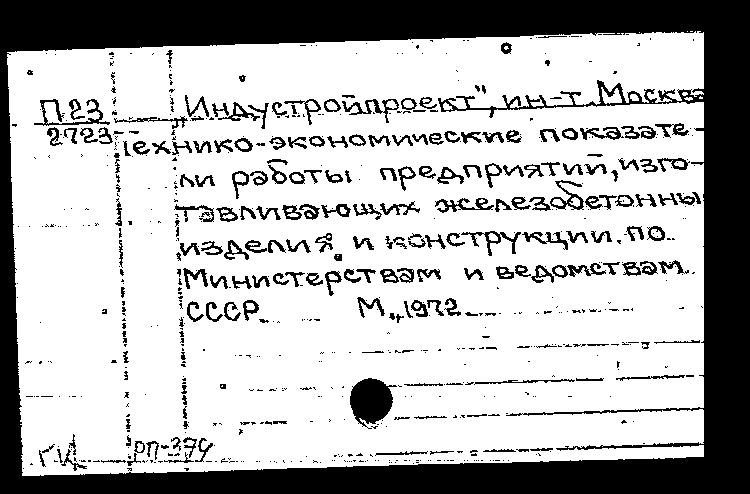 П23 „Индустройпроект", ин-т. Москва
2723 Технико-экономические показате-
ли работы предприятий, изго-
тавливающих железобетонны
изделия и конструкции. по
Министерствам и ведомствам
СССР. М., 1972
РП-374